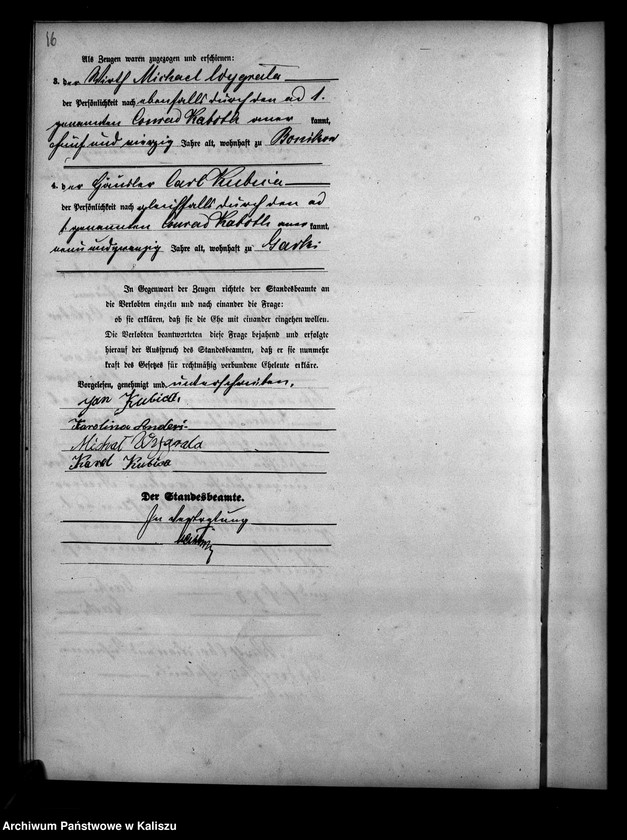 16
Als Zeugen waren zugezogen und erschienen:
3. der Wirth Michael Wygrala
der Persönlichkeit nach ebenfalls durch den ad 1.
genannten Conrad Kaboth aner kannt,
fünf und vierzig Jahre alt, wohnhaft zu Bonikow
4. der Händler Carl Kubica
der Persönlichkeit nach gleichfalls durch den ad
1 genannten Conrad Kaboth aner kannt,
neun und zwanzig Jahre alt, wohnhaft zu Garki
In Gegenwart der Zeugen richtete der Standesbeamte an
die Verlobten einzeln und nach einander die Frage:
ob sie erklären, daß sie die Ehe mit einander eingehen wollen.
Die Verlobten beantworteten diese Frage bejahend und erfolgte
hierauf der Ausspruch des Standesbeamten, daß er sie nunmehr
kraft des Gesetzes für rechtmäßig verbundene Eheleute erkläre.
Vorgelesen, genehmigt und unterschrieben,
Jan Kubica
Karolina
Michał Wygrala
Karol Kubica
Der Standesbeamte.
In Vertretung
Archiwum Państwowe w Kaliszu